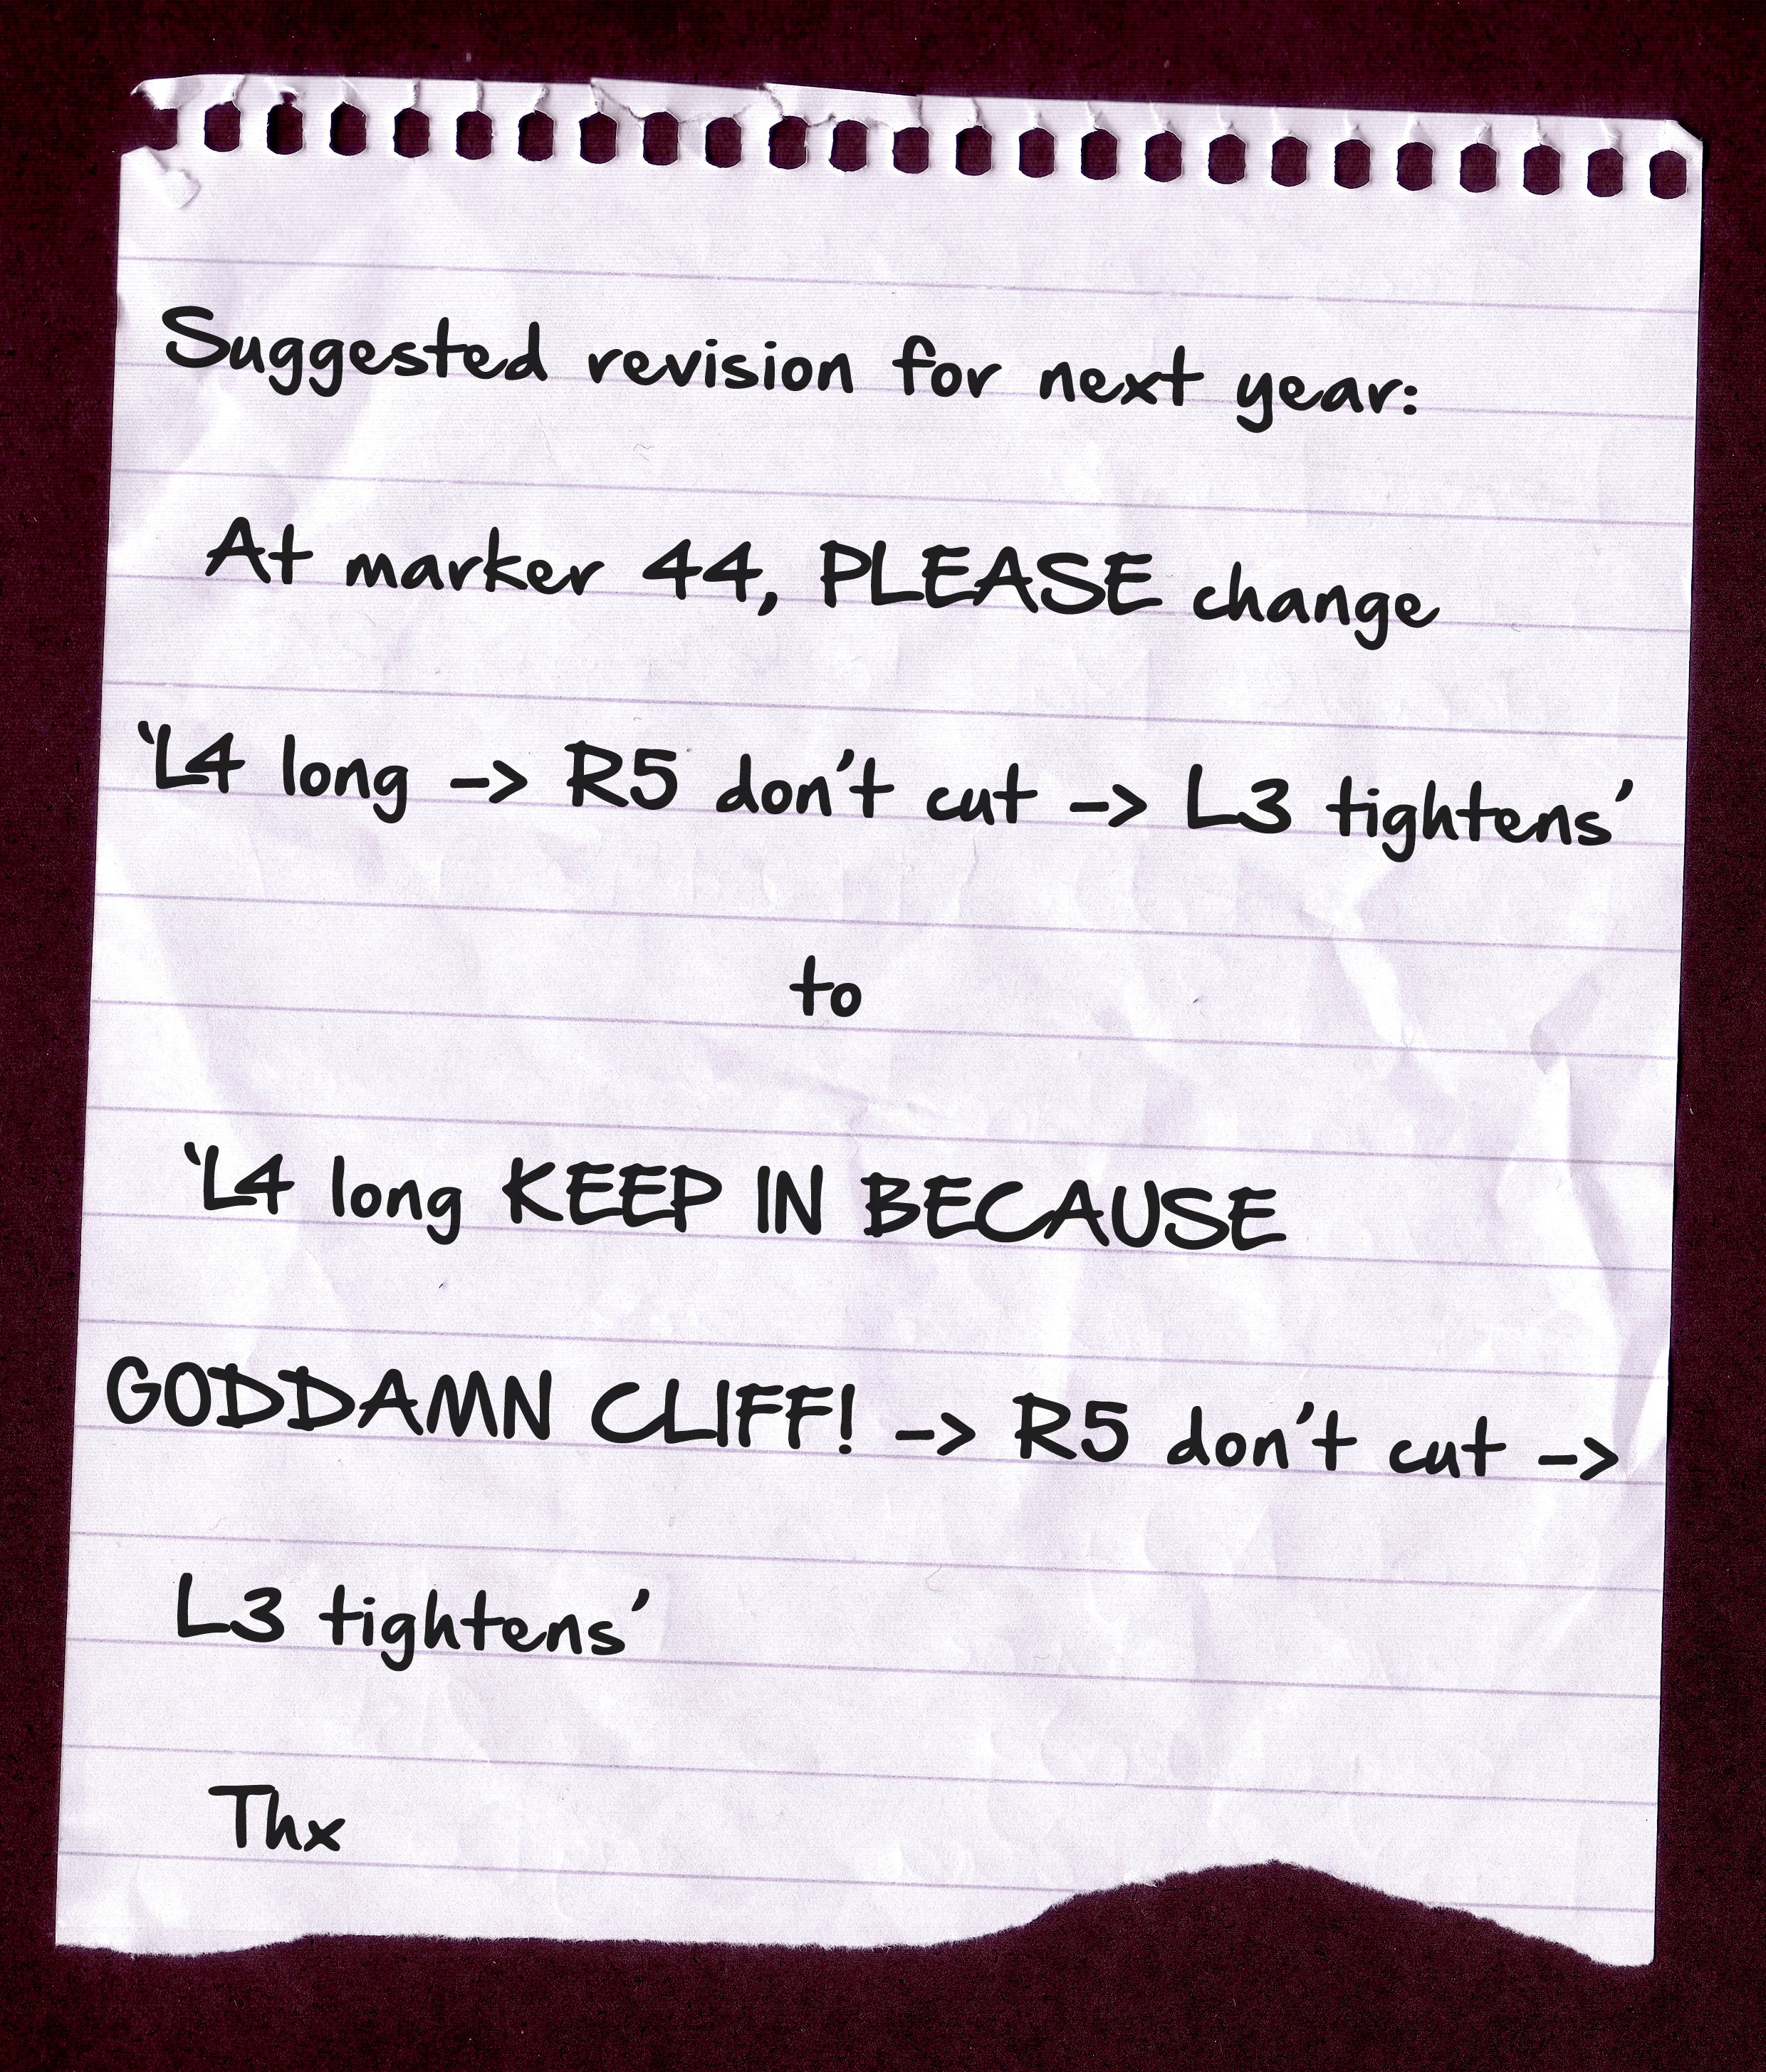 Suggested revision for next year:
At marker 44, PLEASE change
‘L4 long -> R5 don’t cut -> L3 tightens’
to
‘L4 long KEEP IN BECAUSE
GODDAMN CLIFF! -> R5 don’t cut ->
L3 tightens’
Thx